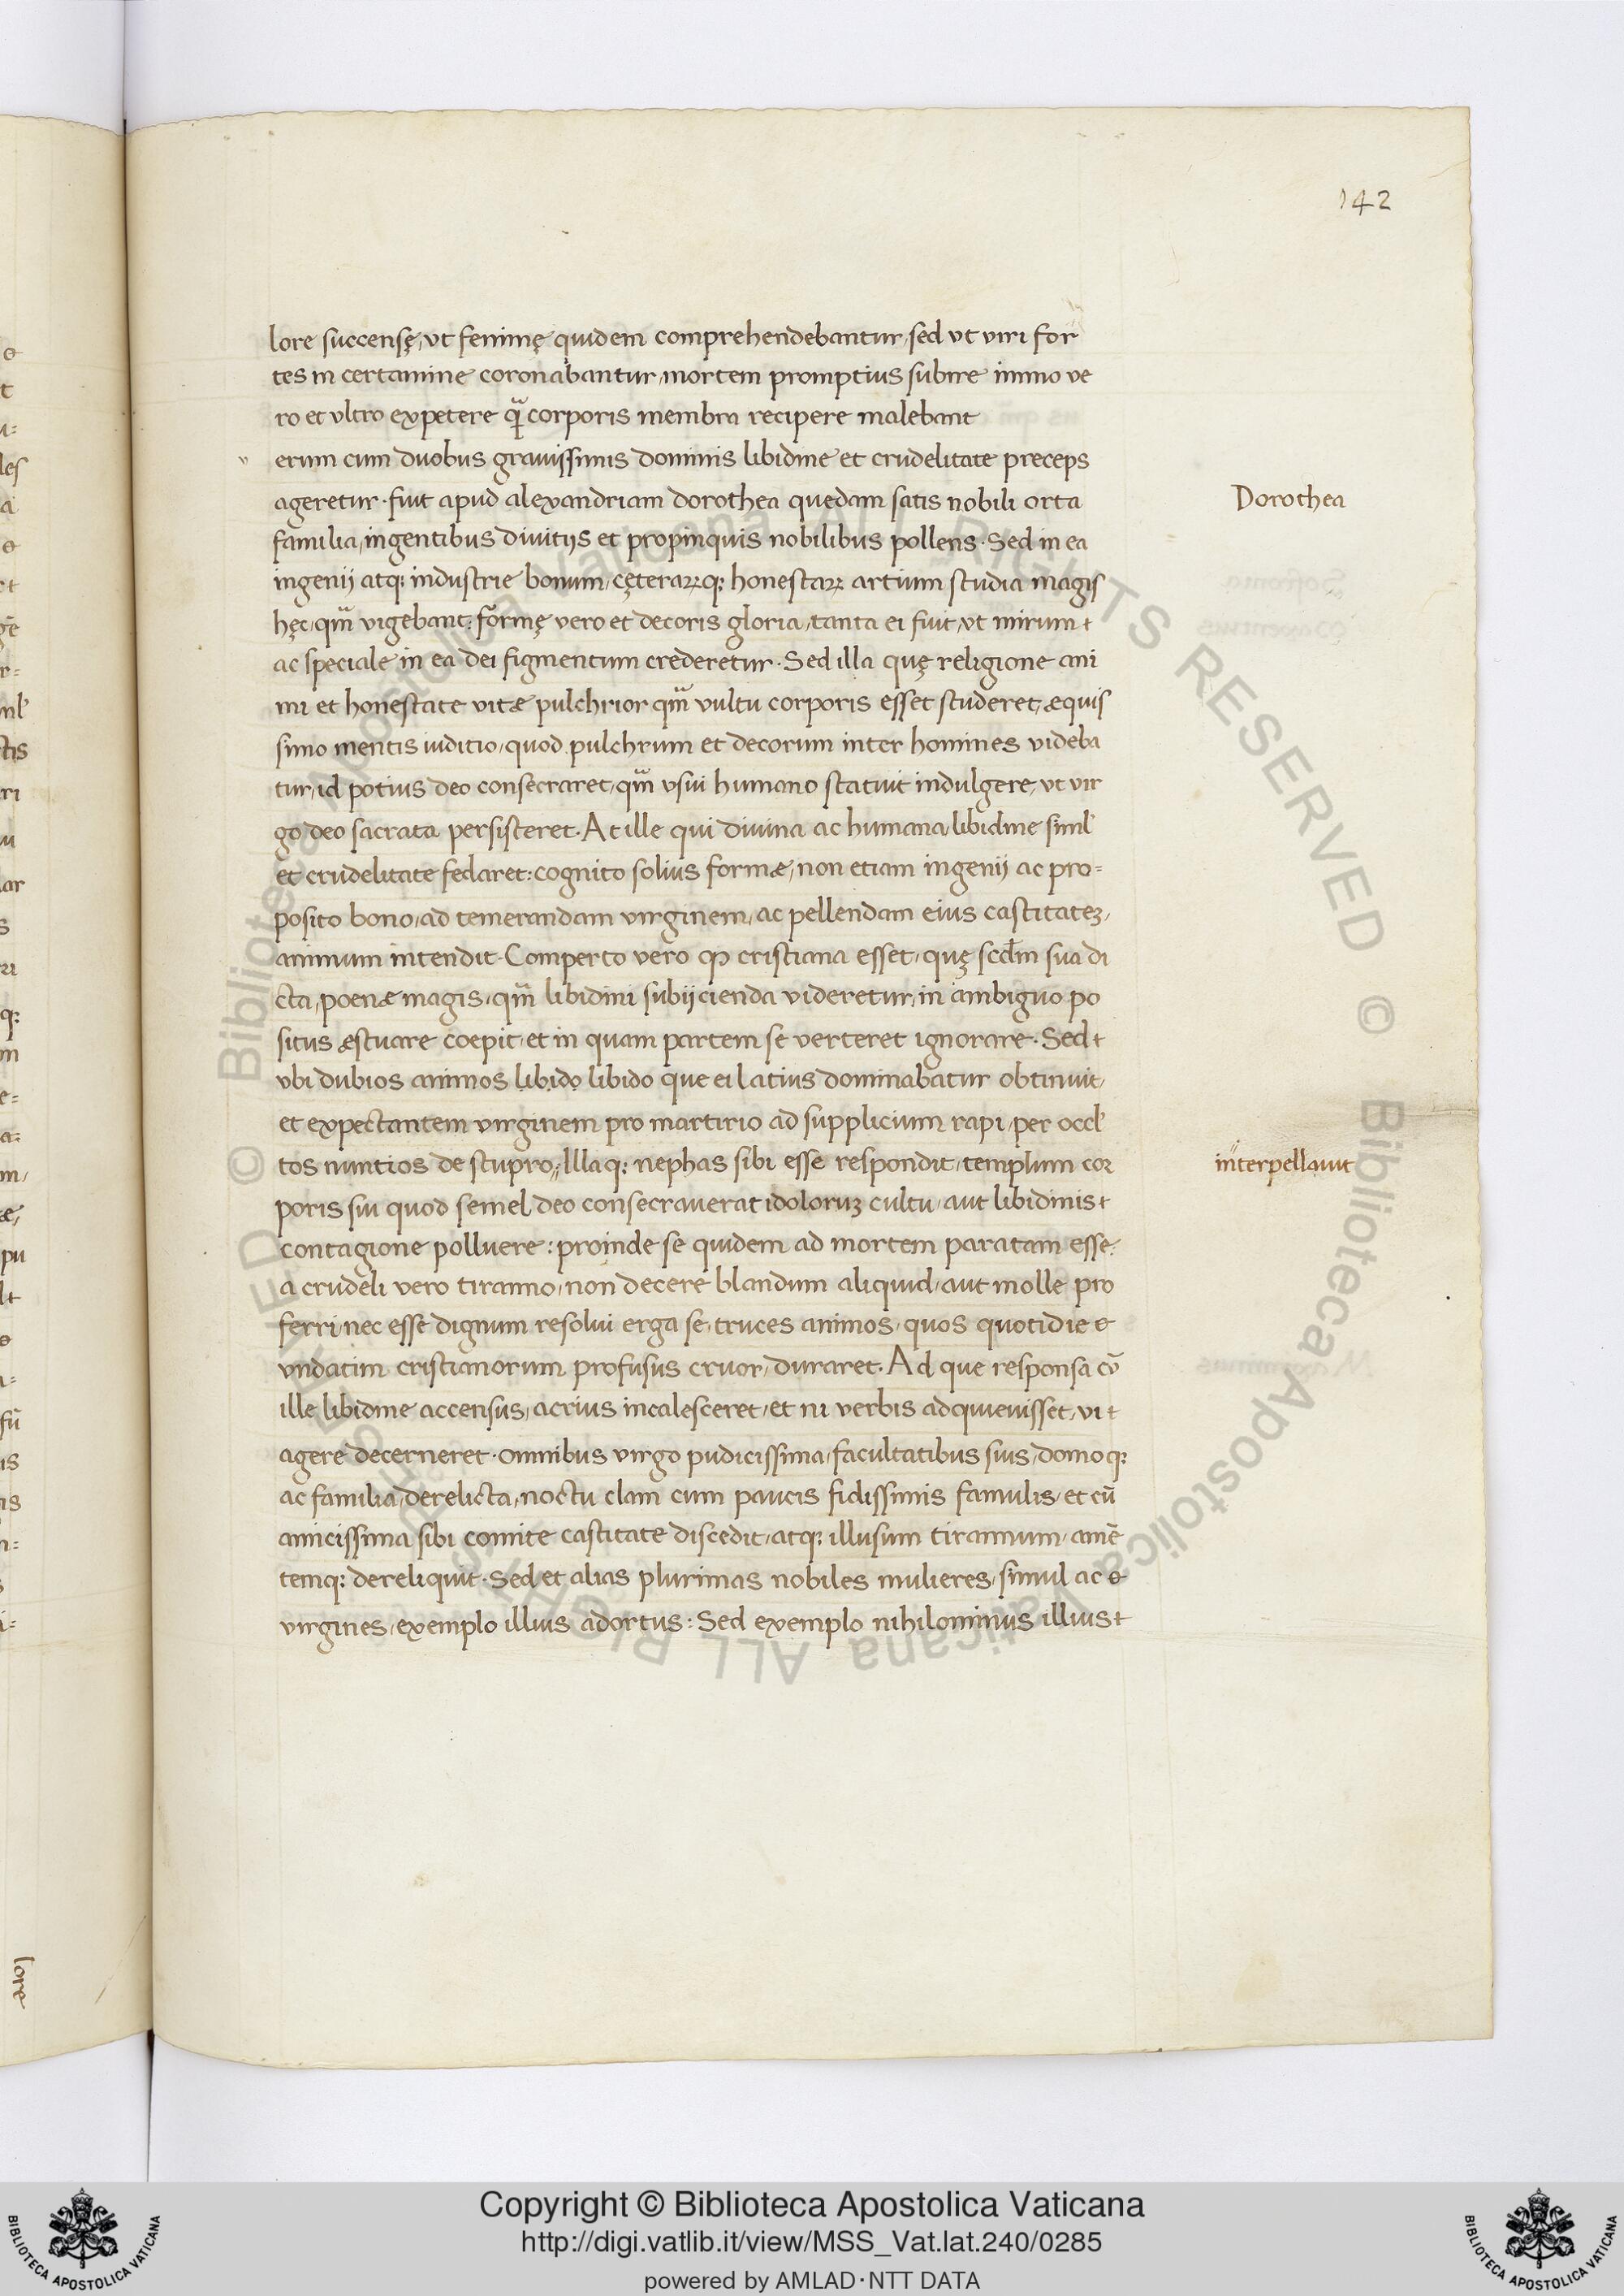 142
lore succensę, ut feminę quidem comprehendebantur, sed ut viri for
tes in certamine coronabantur, mortem promptius subire immo ve
ro et ultro expetere qͣ corporis membra recipere malebant
v erum cum duobus gravissimis dominis libidine et crudelitate preceps
ageretur · fuit apud alexandriam dorothea quedam satis nobili orta
Dorothea
familia, ingentibus divitijs et propinquis nobilibus pollens · Sed in ea
ingenij atq; industrie bonum, cęteraꝝq; honestaꝝ artium studia magis
hęc, qm̃ vigebant: formę vero et decoris gloria, tanta ei fuit, ut mirum
ac speciale in ea dei figmentum crederetur · Sed illa quę religione ani
mi et honestate vitæ pulchrior qm̃ vultu corporis esset studeret, æquis
simo mentis iuditio, quod pulchrum et decorum inter homines videba
tur, id potius deo consecraret, qm̃ usui humano statuit indulgere, ut vir
go deo sacrata persisteret. At ille qui divina ac humana libidine siml̃
et crudelitate fedaret: cognito solius formæ, non etiam ingenij ac pro=
posito bono, ad temerandam virginem, ac pellendam eius castitateʒ,
animum intendit. Comperto vero ꝙ cristiana esset, quę scdm̃ sua di
cta, poenæ magis, qm̃ libidini subijcienda videretur, in ambiguo po
situs æstuare coepit, et in quam partem se verteret ignorare. Sed
ubi dubios animos libido libido que ei latius dominabatur obtinuit,
et expectantem virginem pro martirio ad supplicium rapi, per occl̃
tos nuntios de stupro,,Illaq; nephas sibi esse respondit, templum cor
interpellavit
poris sui quod semel deo consecraverat idoloruʒ cultu, aut libidinis
contagione polluere: proinde se quidem ad mortem paratam esse,
a crudeli vero tiranno, non decere blandum aliquid, aut molle pro
ferri, nec esse dignum resolvi erga se, truces animos, quos quotidie &
undatim cristianorum profusus cruor, duraret. Ad que responsa cũ
ille libidine accensus, acrius incalesceret, et ni verbis adquievisset, vi
agere decerneret · omnibus virgo pudicissima, facultatibus suis, domoq;
ac familia, derelicta, noctu clam cum paucis fidissimis famulis, et cũ
amicissima sibi comite castitate discedit, atq; illusum tirannum, amẽ
temq; dereliquit · Sed et alias plurimas nobiles mulieres, simul ac &
virgines, exemplo illius adortus: Sed exemplo nihilominus illius
lore
Copyright © Biblioteca Apostolica Vaticana
http://digi.vatlib.it/view/MSS_Vat.lat.240/0285
powered by AMLAD·NTT DATA
BIBLIOTECA APOSTOLICA VATICANA
BIBLIOTECA APOSTOLICA VATICANA